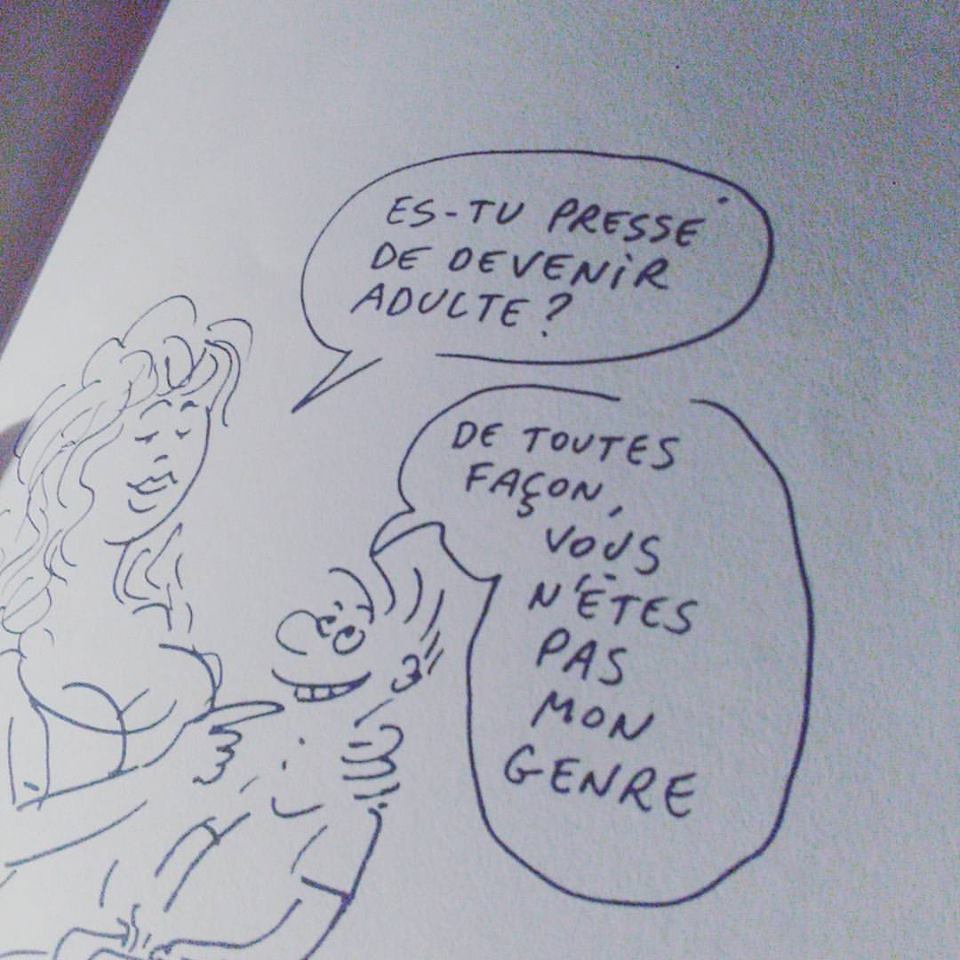 ES-TU PRESSÉ
DE DEVENIR
ADULTE ?
DE TOUTES
FAÇON,
VOUS
N'ÊTES
PAS
MON
GENRE